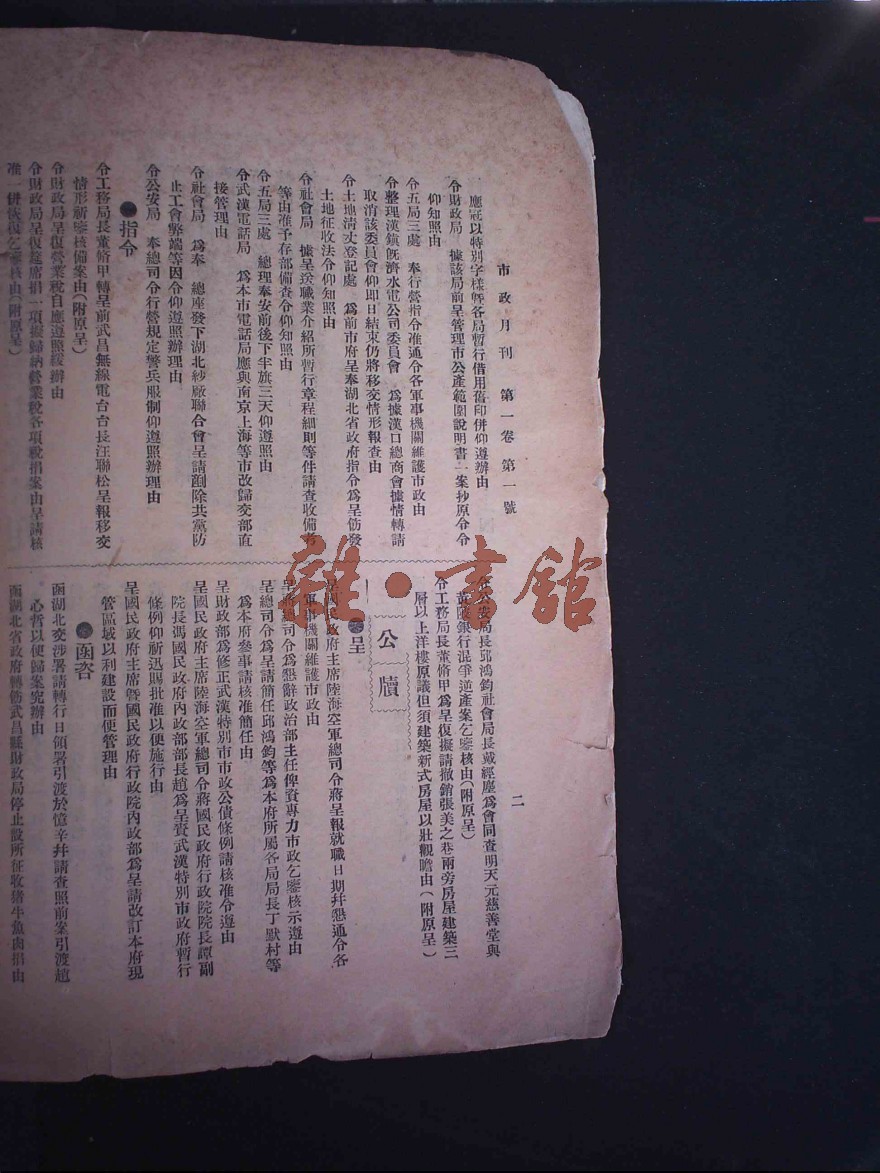 市政月刊 第一卷 第一號
二
應記以特別字樣暨各局暫行借用舊印併仰遵辦由
令財政局 據該局前呈管理市公產範圍說明書一案抄原令令
仰知照由
令五局三處 奉行營指令准通令各軍事機關維護市政由
令整理漢鎮旣濟水電公司委員會 爲據漢口總商會據情轉請
取消該委員會仰即日結束仍將移交情形報查由
令土地清丈登記處 爲前市府呈奉湖北省政府指令爲呈飭發
土地征收法令仰知照由
令社會局 據呈送職業介紹所暫行章程細則等件請查收備考
等由准予存部備查令仰知照由
令五局三處 總理奉安前後下半旗三天仰遵照由
令武漢電話局 爲本市電話局應與南京上海等市改歸交部直
接管理由
令社會局 爲奉 總座發下湖北紗廠聯合會呈請剷除共黨防
止工會弊端等因令仰遵照辦理由
令公安局 奉總司令行營規定警兵服制仰遵照辦理由
●指令
令工務局長董脩甲轉呈前武昌無線電台台長汪聯松呈報移交
情形祈鑒核備案由(附原呈)
令財政局呈復營業稅自應遵照緩辦由
令財政局呈復筵席捐一項擬歸納營業稅各項稅捐案由呈請核
准一併俠復乞鑒核由(附原呈)
令公安局長邱鴻鈞社會局長戴經塵爲會同查明天元慈善堂與
黃陂銀行混爭逆產案乞鑒核由(附原呈)
令工務局長董脩甲爲呈復擬請撤銷張美之巷兩旁房屋建築三
層以上洋樓原議但須建築新式房屋以壯觀瞻由(附原呈)
公牘
●呈
呈國民政府主席陸海空軍總司令蔣呈報就職日期幷懇通令各
軍事機關維護市政由
呈蔣總司令爲懇辭政治部主任俾資專力市政乞鑒核示遵由
呈總司令爲呈請簡任邱鴻鈞等爲本府所屬各局局長丁默村等
爲本府參事請核准簡任由
呈財政部爲修正武漢特別市市政公債條例請核准令遵由
呈國民政府主席陸海空軍總司令蔣國民政府行政院院長譚副
院長馮國民政府內政部部長趙爲呈賫武漢特別市政府暫行
條例仰祈迅賜批准以便施行由
呈國民政府主席暨國民政府行政院內政部爲呈請改訂本府現
管區域以利建設而便管理由
●函咨
函湖北交涉署請轉行日領署引渡於憶辛幷請查照前案引渡趙
心哲以便歸案究辦由
函湖北省政府轉飭武昌縣財政局停止設所征收猪牛魚肉捐由
雜·書館